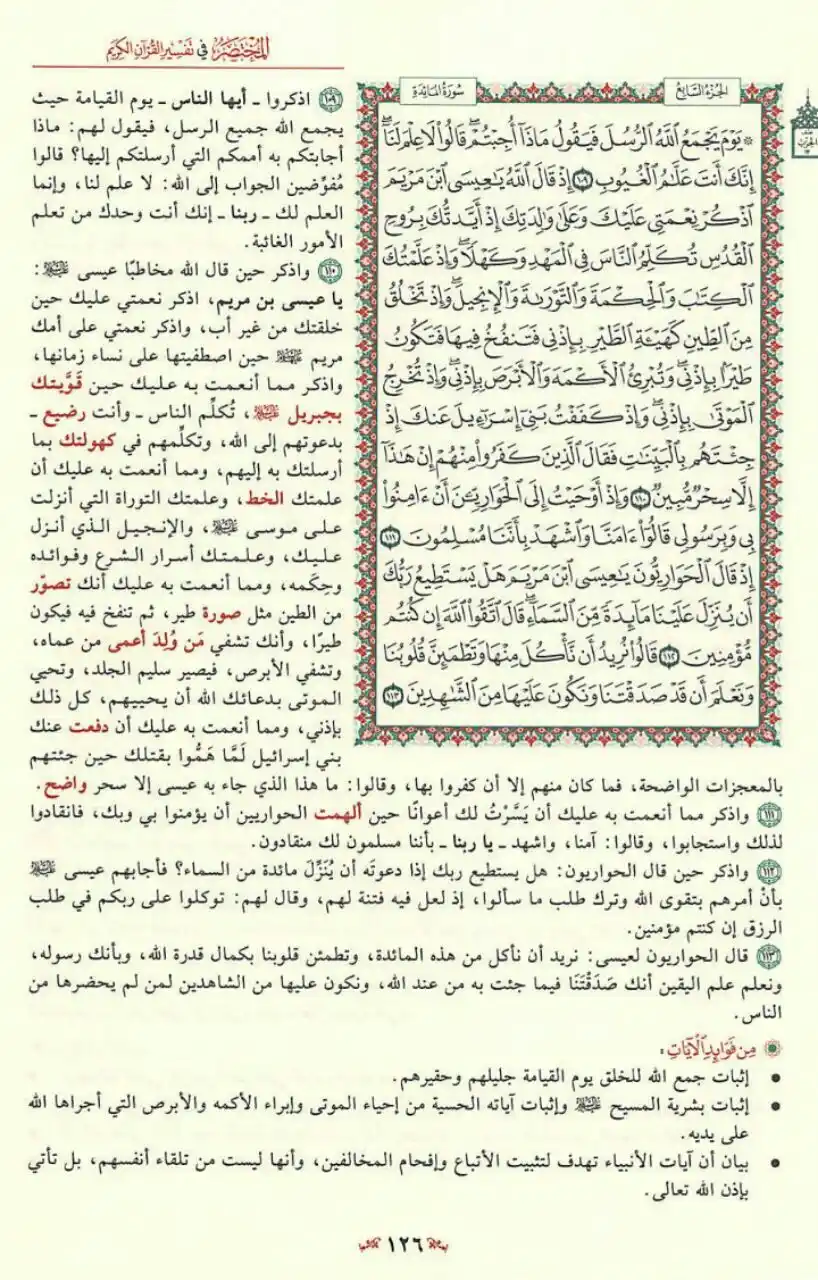 المختصر في تفسير القرآن الكريم
الجزء السابع
سورة المائدة
۞ يَوْمَ يَجْمَعُ ٱللَّهُ ٱلرُّسُلَ فَيَقُولُ مَاذَآ أُجِبْتُمْۖ قَالُوا۟ لَا عِلْمَ لَنَآۖ
إِنَّكَ أَنتَ عَلَّٰمُ ٱلْغُيُوبِ ١٠٩ إِذْ قَالَ ٱللَّهُ يَٰعِيسَى ٱبْنَ مَرْيَمَ
ٱذْكُرْ نِعْمَتِى عَلَيْكَ وَعَلَىٰ وَٰلِدَتِكَ إِذْ أَيَّدتُّكَ بِرُوحِ
ٱلْقُدُسِ تُكَلِّمُ ٱلنَّاسَ فِى ٱلْمَهْدِ وَكَهْلًاۖ وَإِذْ عَلَّمْتُكَ
ٱلْكِتَٰبَ وَٱلْحِكْمَةَ وَٱلتَّوْرَىٰةَ وَٱلْإِنجِيلَۖ وَإِذْ تَخْلُقُ
مِنَ ٱلطِّينِ كَهَيْـَٔةِ ٱلطَّيْرِ بِإِذْنِى فَتَنفُخُ فِيهَا فَتَكُونُ
طَيْرًۢا بِإِذْنِىۖ وَتُبْرِئُ ٱلْأَكْمَهَ وَٱلْأَبْرَصَ بِإِذْنِىۖ وَإِذْ تُخْرِجُ
ٱلْمَوْتَىٰ بِإِذْنِىۖ وَإِذْ كَفَفْتُ بَنِىٓ إِسْرَٰٓءِيلَ عَنكَ إِذْ
جِئْتَهُم بِٱلْبَيِّنَٰتِ فَقَالَ ٱلَّذِينَ كَفَرُوا۟ مِنْهُمْ إِنْ هَٰذَآ
إِلَّا سِحْرٌ مُّبِينٌ ١١٠ وَإِذْ أَوْحَيْتُ إِلَى ٱلْحَوَارِيِّـۧنَ أَنْ ءَامِنُوا۟
بِى وَبِرَسُولِى قَالُوٓا۟ ءَامَنَّا وَٱشْهَدْ بِأَنَّنَا مُسْلِمُونَ ١١١
إِذْ قَالَ ٱلْحَوَارِيُّونَ يَٰعِيسَى ٱبْنَ مَرْيَمَ هَلْ يَسْتَطِيعُ رَبُّكَ
أَن يُنَزِّلَ عَلَيْنَا مَآئِدَةً مِّنَ ٱلسَّمَآءِۖ قَالَ ٱتَّقُوا۟ ٱللَّهَ إِن كُنتُم
مُّؤْمِنِينَ ١١٢ قَالُوا۟ نُرِيدُ أَن نَّأْكُلَ مِنْهَا وَتَطْمَئِنَّ قُلُوبُنَا
وَنَعْلَمَ أَن قَدْ صَدَقْتَنَا وَنَكُونَ عَلَيْهَا مِنَ ٱلشَّٰهِدِينَ ١١٣
١٠٩ اذكروا ـ أيها الناس ـ يوم القيامة حيث
يجمع الله جميع الرسل، فيقول لهم: ماذا
أجابتكم به أممكم التي أرسلتكم إليها؟ قالوا
مُفوِّضين الجواب إلى الله: لا علم لنا، وإنما
العلم لك ـ ربنا ـ إنك أنت وحدك من تعلم
الأمور الغائبة.
١١٠ واذكر حين قال الله مخاطبًا عيسى ﵇:
يا عيسى بن مريم، اذكر نعمتي عليك حين
خلقتك من غير أب، واذكر نعمتي على أمك
مريم ﵍ حين اصطفيتها على نساء زمانها،
واذكر مما أنعمت به عليك حين قَوَّيتك
بجبريل ﵇، تُكلِّم الناس ـ وأنت رضيع ـ
بدعوتهم إلى الله، وتكلِّمهم في كهولتك بما
أرسلتك به إليهم، ومما أنعمت به عليك أن
علمتك الخط، وعلمتك التوراة التي أنزلت
على موسى ﵇، والإنجيل الذي أنزل
عليك، وعلمتك أسرار الشرع وفوائده
وحِكَمه، ومما أنعمت به عليك أنك تصوّر
من الطين مثل صورة طير، ثم تنفخ فيه فيكون
طيرًا، وأنك تشفي مَن وُلِدَ أعمى من عماه،
وتشفي الأبرص، فيصير سليم الجلد، وتحيي
الموتى بدعائك الله أن يحييهم، كل ذلك
بإذني، ومما أنعمت به عليك أن دفعت عنك
بني إسرائيل لَمَّا هَمُّوا بقتلك حين جئتهم
بالمعجزات الواضحة، فما كان منهم إلا أن كفروا بها، وقالوا: ما هذا الذي جاء به عيسى إلا سحر واضح.
١١١ واذكر مما أنعمت به عليك أن يَسَّرْتُ لك أعوانًا حين ألهمت الحواريين أن يؤمنوا بي وبك، فانقادوا
لذلك واستجابوا، وقالوا: آمنا، واشهد ـ يا ربنا ـ بأننا مسلمون لك منقادون.
١١٢ واذكر حين قال الحواريون: هل يستطيع ربك إذا دعوتَه أن يُنَزِّلَ مائدة من السماء؟ فأجابهم عيسى ﵇
بأنْ أمرهم بتقوى الله وترك طلب ما سألوا، إذ لعل فيه فتنة لهم، وقال لهم: توكلوا على ربكم في طلب
الرزق إن كنتم مؤمنين.
١١٣ قال الحواريون لعيسى: نريد أن نأكل من هذه المائدة، وتطمئن قلوبنا بكمال قدرة الله، وبأنك رسوله،
ونعلم علم اليقين أنك صَدَقْتَنَا فيما جئت به من عند الله، ونكون عليها من الشاهدين لمن لم يحضرها من
الناس.
من فوائد الآيات:
• إثبات جمع الله للخلق يوم القيامة جليلهم وحقيرهم.
• إثبات بشرية المسيح ﵇ وإثبات آياته الحسية من إحياء الموتى وإبراء الأكمه والأبرص التي أجراها الله
على يديه.
• بيان أن آيات الأنبياء تهدف لتثبيت الأتباع وإفحام المخالفين، وأنها ليست من تلقاء أنفسهم، بل تأتي
بإذن الله تعالى.
١٢٦